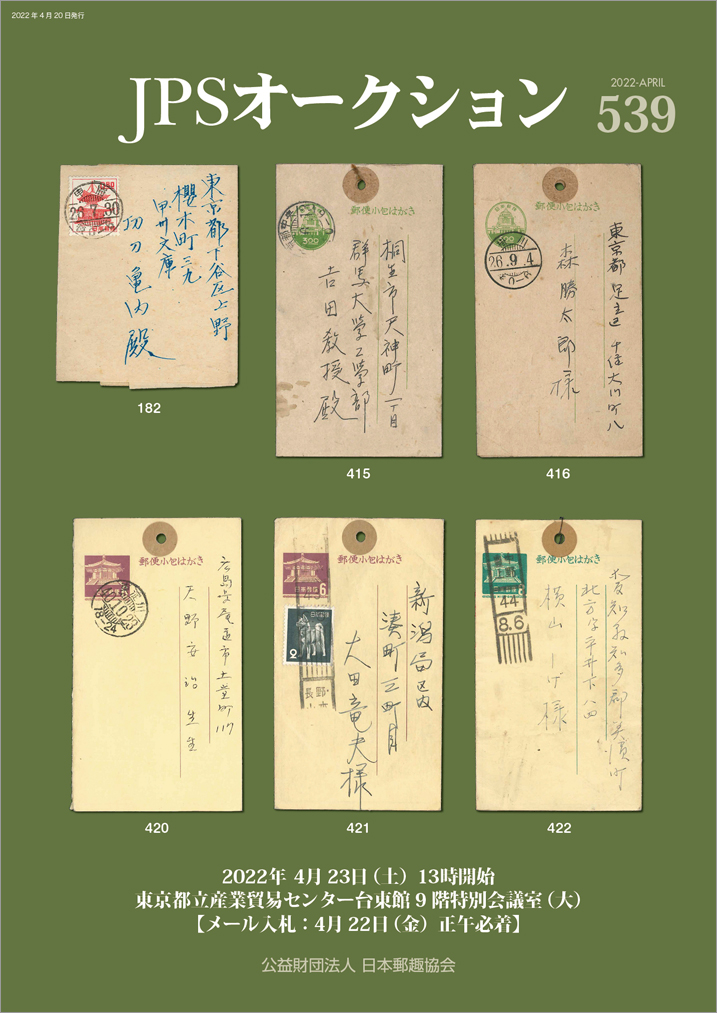 2022年4月20日発行
JPSオークション
2022-APRIL
539
東京都下谷区上野
櫻木町三九
甲州文庫
功刀亀内殿
26.7.30
182
郵便小包はがき
300
桐生市天神町一丁目
群馬大学工学部
吉田教授殿
415
郵便小包はがき
300
26.9.4
東京都足立区千住大川町八
森勝太郎様
416
郵便小包はがき
18-24
広島県尾道市土堂町
天野安治先生
420
郵便小包はがき
6
2
長野
新潟局区内
湊町三町目
太田竜夫様
421
郵便小包はがき
44
8.6
愛知県知多郡美浜町
北方字平井下八四
横山しげ様
422
2022年 4月23日（土）13時開始
東京都立産業貿易センター台東館9階特別会議室（大）
【メール入札：4月22日（金）正午必着】
公益財団法人 日本郵趣協会